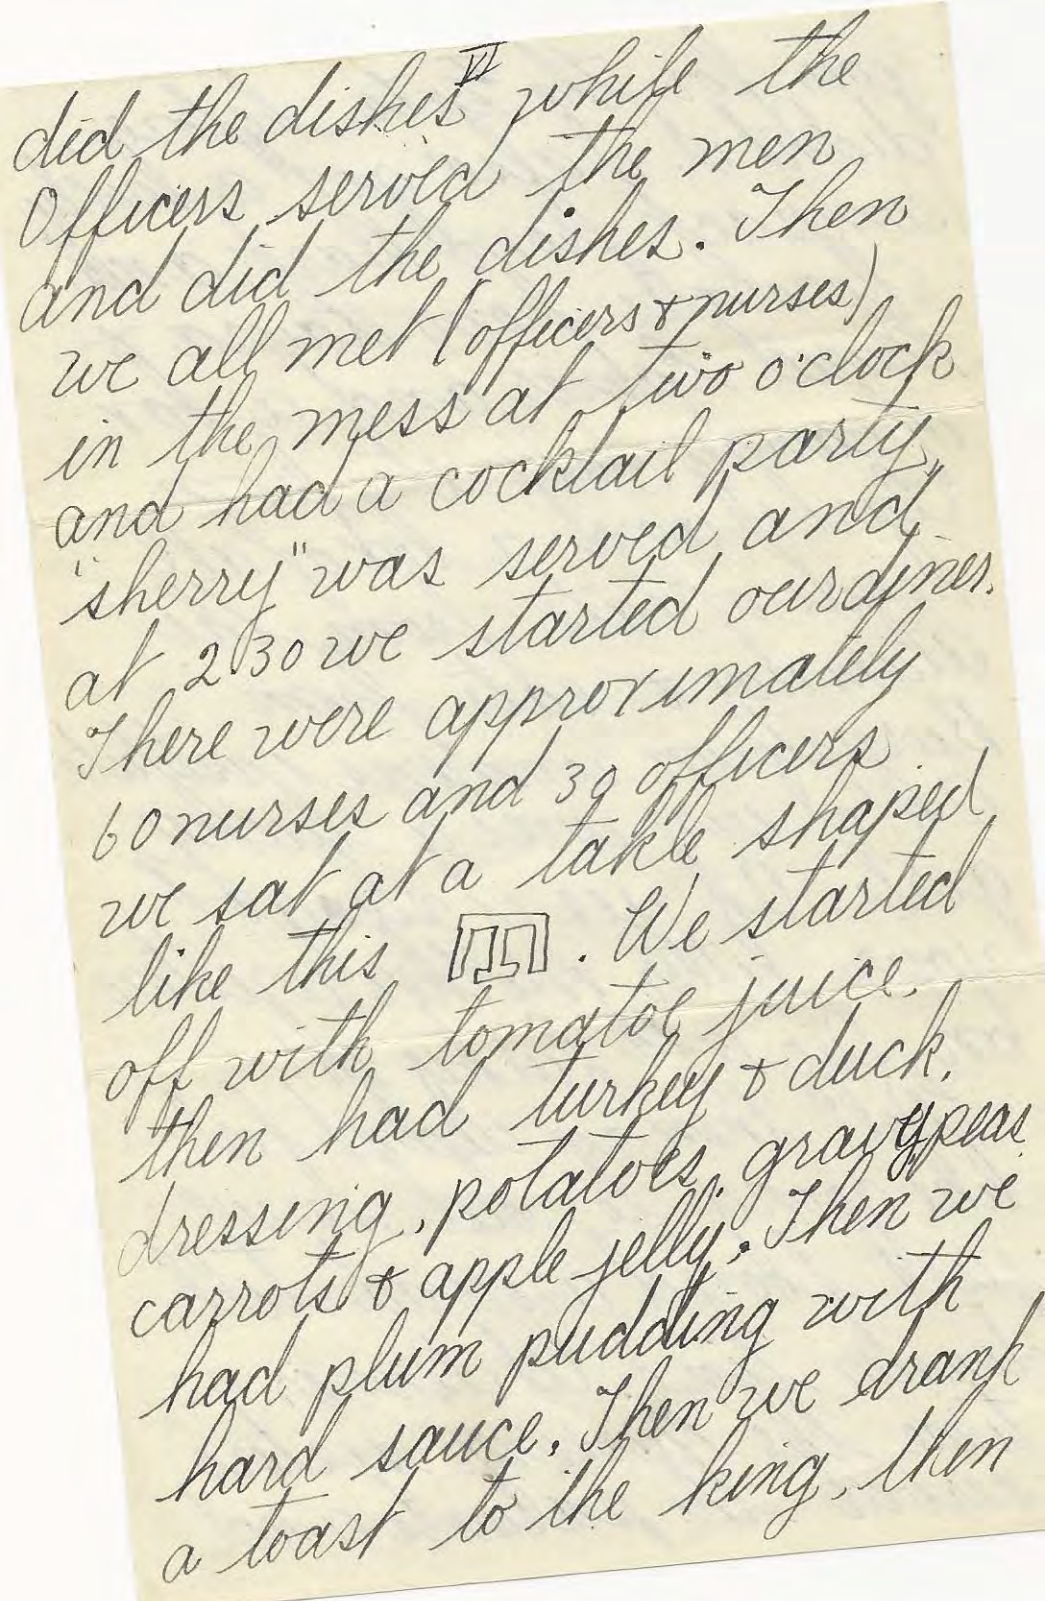 VI
did the dishes while the
Officers served the men
and did the dishes. Then
we all met (officers & nurses)
in the mess at two o'clock
and had a cocktail party,
"sherry" was served and
at 2.30 we started our diner.
There were approximately
60 nurses and 30 officers
we sat at a table shaped
like this . We started
off with tomatoe juice.
then had turkey & duck,
dressing, potatoes, gravy, peas
carrots & apple jelly. Then we
had plum pudding with
hard sauce. Then we drank
a toast to the king, then